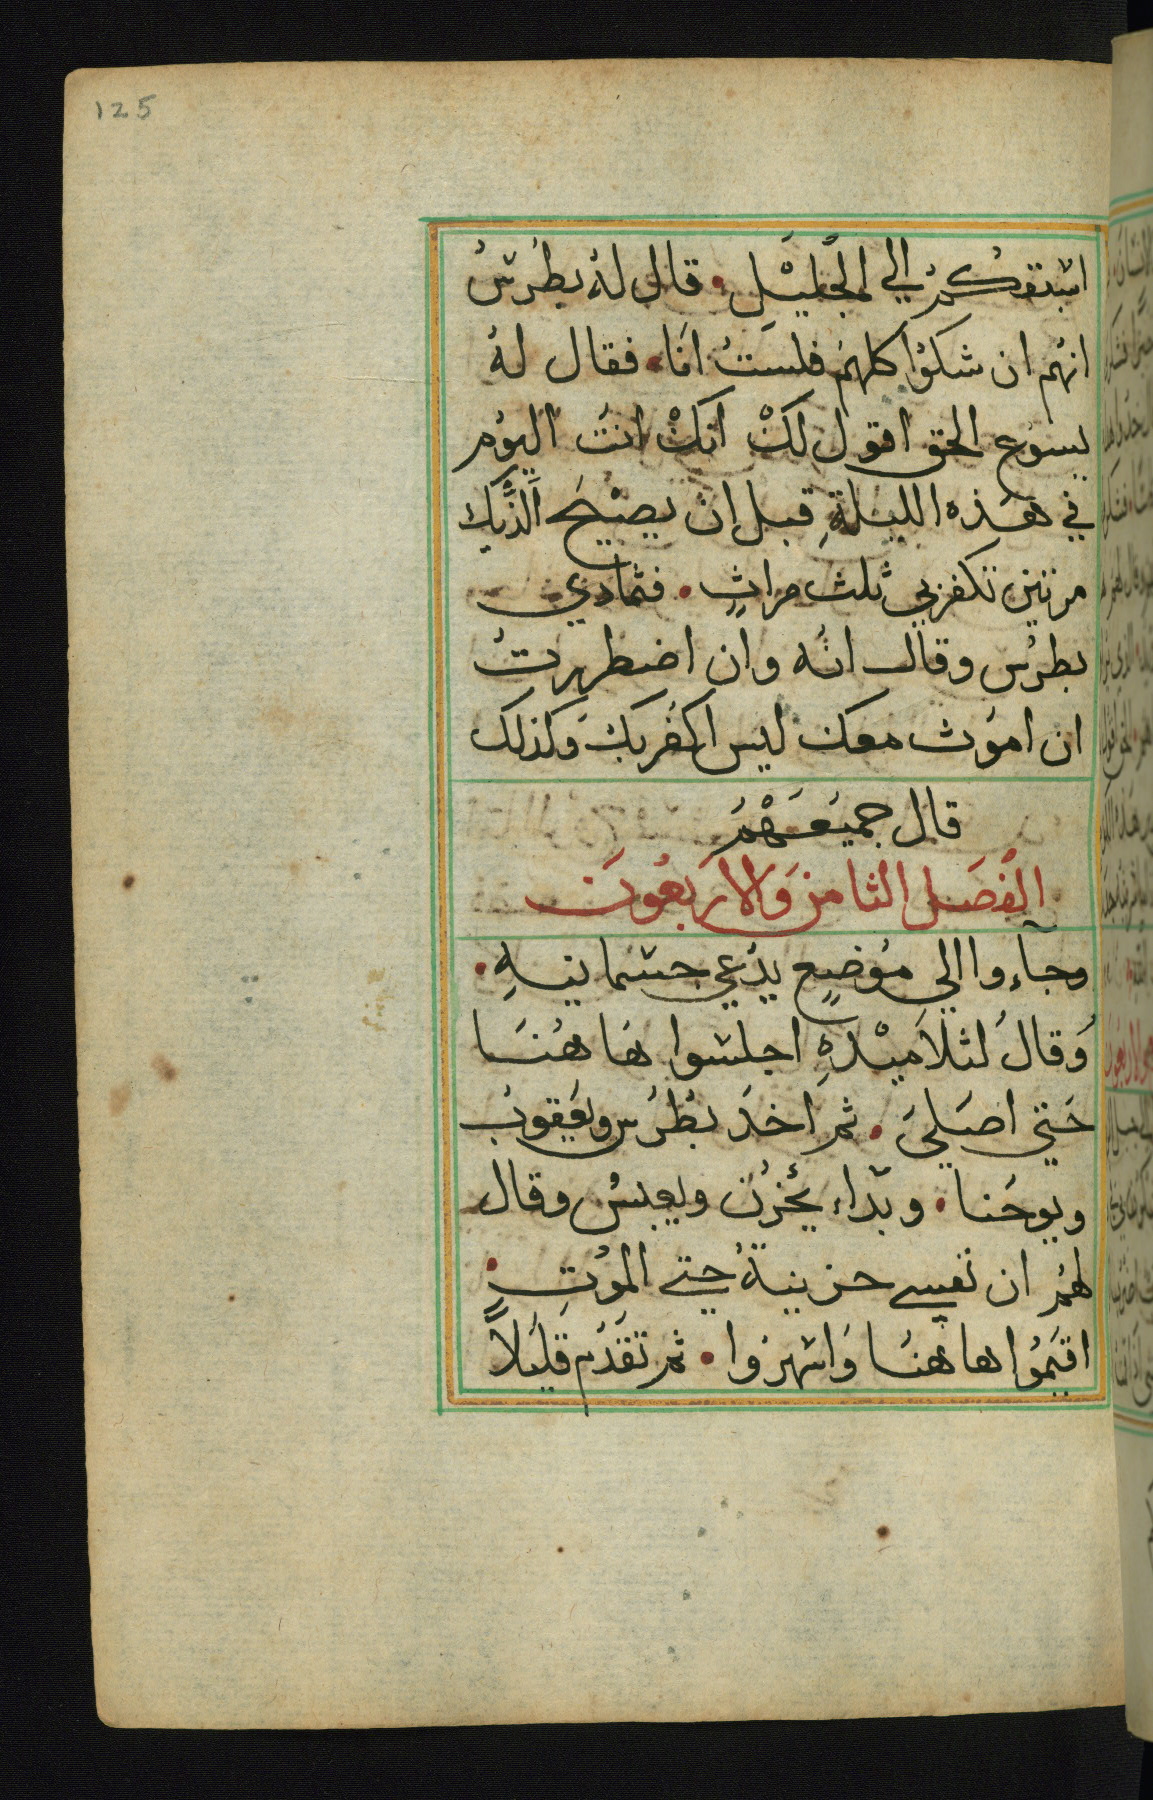 125
اسبقكم الي الجليل • قال له بطرس
انهم ان شكوا كلهم فلست انا • فقال له
يسوع الحق اقول لك انك انت اليوم
في هذه الليلة قبل ان يصيح الديك
مرتين تكفر بي ثلث مرات • فتمادي
بطرس وقال انه وان اضطررت
ان اموت معك ليس اكفر بك وكذلك
قال جميعهم
الفصل الثامن والاربعون
وجاءوا الي موضع يدعي جسمانيه •
وقال لتلاميذه اجلسوا هاهنا
حتي اصلي • ثم اخذ بطرس ويعقوب
ويوحنا • وبداء يحزن ويعبس وقال
لهم ان نفسي حزينة حتي الموت •
اقيموا هاهنا واسهروا • ثم تقدم قليلاً